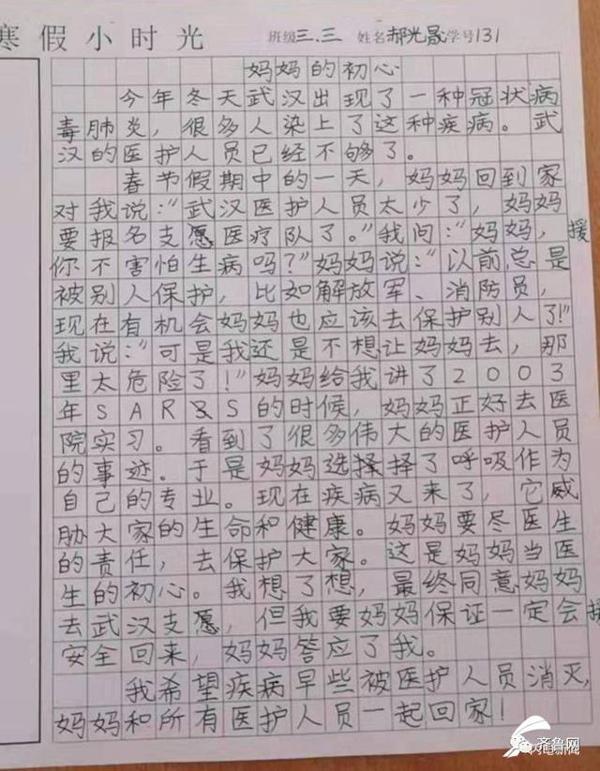 寒假小时光 班级三.三 姓名郝光晟学号131
妈妈的初心
今年冬天武汉出现了一种冠状病
毒肺炎，很多人染上了这种疾病。武
汉的医护人员已经不够了。
春节假期中的一天，妈妈回到家
对我说：“武汉医护人员太少了，妈妈
要报名支愿医疗队了。”我问：“妈妈，援
你不害怕生病吗？”妈妈说：“以前总是
被别人保护，比如解放军、消防员，
现在有机会妈妈也应该去保护别人了！”
我说：“可是我还是不想让妈妈去，那
里太危险了！”妈妈给我讲了2003
年SARS的时候，妈妈正好去医
院实习。看到了很多伟大的医护人员
的事迹。于是妈妈选择了呼吸作为
自己的专业。现在疾病又来了，它威
胁大家的生命和健康。妈妈要尽医生
的责任，去保护大家。这是妈妈当医
生的初心。我想了想，最终同意妈妈
去武汉支愿，但我要妈妈保证一定会援
安全回来，妈妈答应了我。
我希望疾病早些被医护人员消灭，
妈妈和所有医护人员一起回家！
齐鲁网